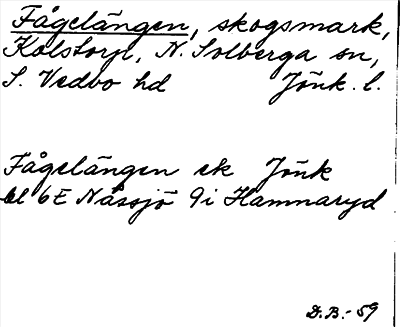 Fågelängen, skogsmark,
Kolstorp, N. Solberga sn,
S. Vedbo hd Jönk. l.
Fågelängen ek Jönk
bl 6E Nässjö 9i Hammaryd
D.B.-59